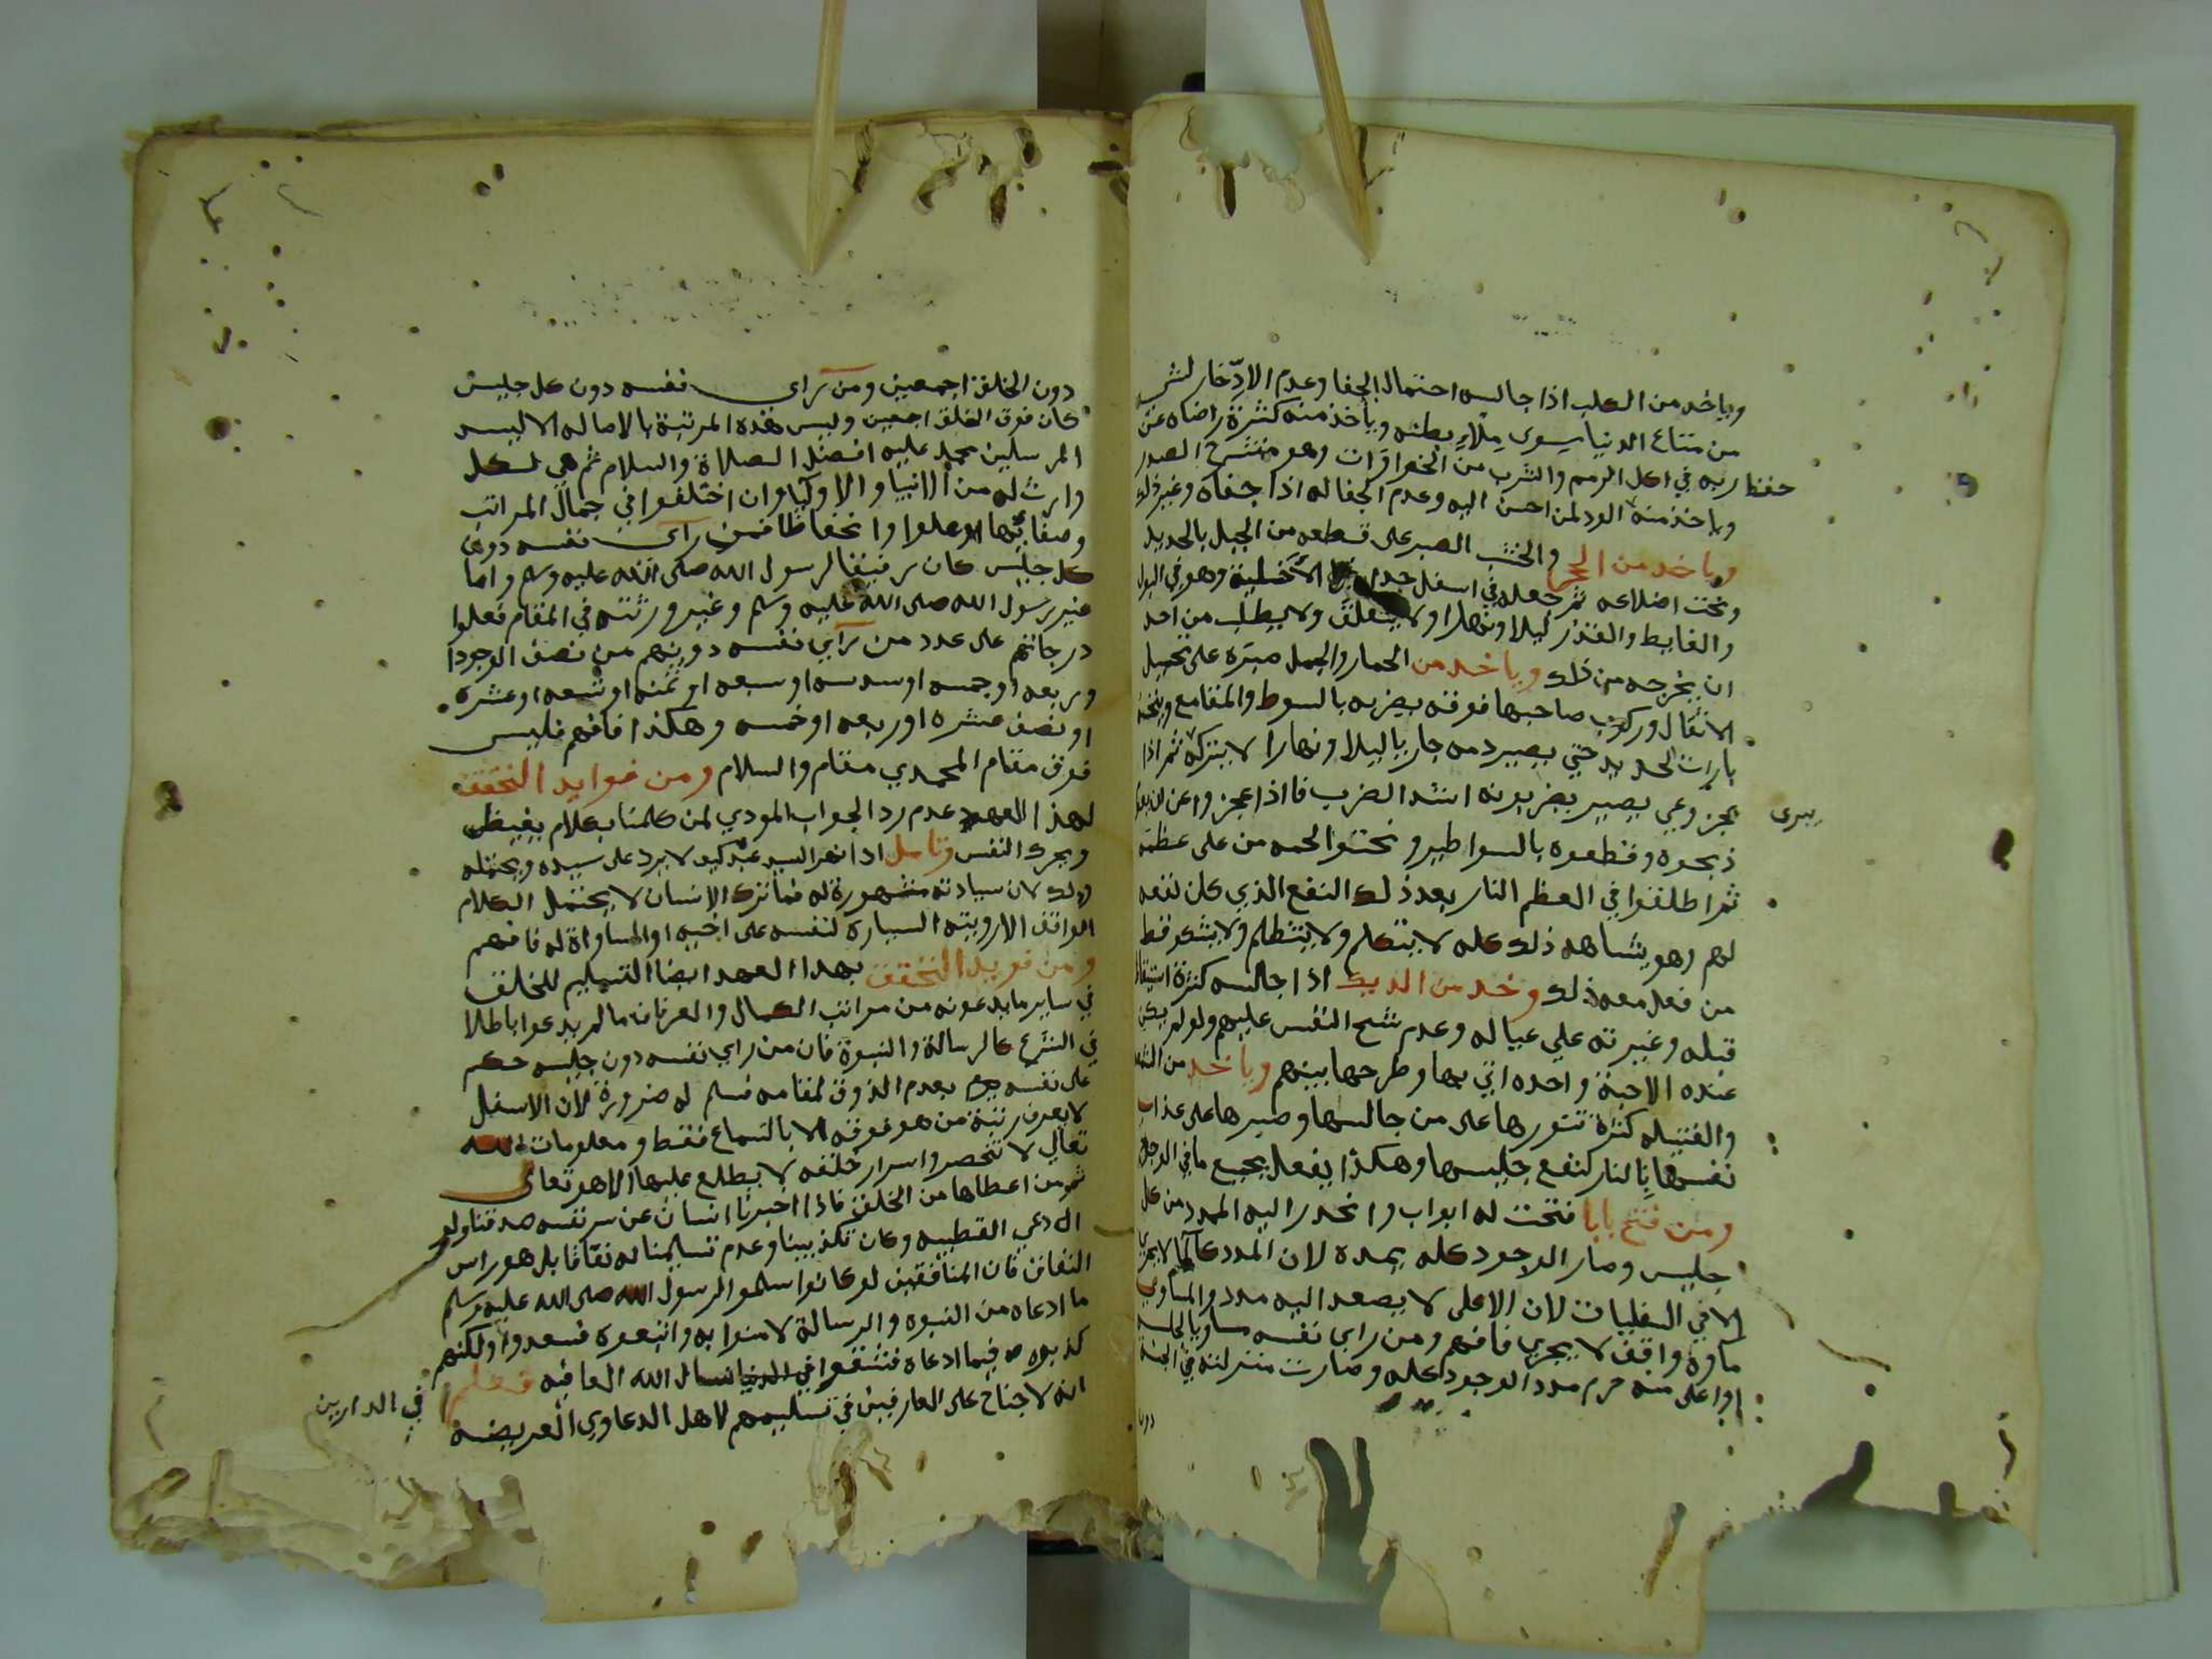 وياخد من الكلب اذا جالسه احتمال الجفا وعدم الادّخار لشي
من متاع الدنيا سوي ملاءِ بطنه وياخذ منه كثرة رضاه عن
ربه في اكل الرمم والشرب من الخرارات وهو منشرح الصدر
حفظ
وياخذ منه الود لمن احسن اليه وعدم الجفا له اذا جفاه وغير ذلك
وياخد من الحجر والخشب الصبر على قطعه من الجبل بالحديد
ونحت اضلاعه ثم جعله في اسفل جدار الاخلية وهو في البول
والغايط والقذر ليلا ونهارا ولا يتقلق ولا يطلب من احد
ان يخرجه من ذلك وياخد من الحمار والجمل صبره على تحميل
الاثقال وركوب صاحبها فوقه يضربه بالسوط والمقامع وينخسه
بابرات الحديد حتي يصير دمه جاريا ليلا ونهارا لا يتركه ثم اذا
عجز وعي يصير يضربونه اشد الضرب فاذا عجزوا عن
يبرى
ذبحوه وقطعوه بالسواطير ونحتوا لحمه من على عظمه
ثم اطلقوا في العظم النار بعد ذلك النفع الذي كان نفعه
لهم وهو يشاهد ذلك كله لا يتكلم ولا يتظلم ولا يشكو قط
من فعل معه ذلك وخد من الديك اذا جالسه كثرة
قبله وغيرته علي عياله وعدم شح النفس عليهم ولو لم يكن
عنده الا حبة واحده اتي بها وطرحها بينهم وياخد من
والفتيله كثرة تنورها على من جالسها وصبرها على عذاب
نفسها بالنار لنفع جليسها وهكذا يفعل بجميع ما في الوجود
ومن فتح بابا فتحت له ابواب وانحدر اليه المدد من كل
جليس وصار الوجود كله يمده لان المدد كالما لا يجري
الا في السفليات لان الاعلى لا يصعد اليه مدد والمساوي
ماوه واقف لا يجري فافهم ومن راي نفسه مساويا لجليسه
او اعلى منه حرم مدد الوجود كله وصارت منزلته في الجنة
دون
دون الخلق اجمعين ومن رآى نفسه دون كل جليس
كان فوق الخلق اجمعين وليس هذه المرتبة بالاصاله الا لسيد
المرسلين محمد عليه افضل الصلاة والسلام ثم هي لكل
وارث له من الانبيا والاوليا وان اختلفوا في جمال المراتب
وصفائها وعلوا وانخفاظا فمن رآى نفسه دون
كل جليس كان رفيقا لرسول الله صلى الله عليه وسلم واما
غير رسول الله صلى الله عليه وسلم وغير ورثته في المقام فعلوا
درجاتهم على عدد من رآي نفسه دونهم من نصف الوجود ا
وربعه او خمسه او سدسه او سبعه او ثمنه او تسعه او عشره
او نصف عشره او ربعه او خمسه وهكذا فافهم فليس
فوق مقام المحمدي مقام والسلام ومن فوايد التحقق
لهذا العهد عدم رد الجواب المودي لمن كلمنا بكلام يغيظ
ويحرك النفس وتامل اذا نهر السيد عبده كيف لا يرد على سيده ويحتمله
وذلك لان سيادته مشهورة له فما ترك الانسان لا يحتمل الكلام
الواقف الا رويته السيادة لنفسه على اخيه او المساواة له فافهم
ومن فويد التحقق بهدا العهد ايضا التسليم للخلق
في ساير ما يدعونه من مراتب الكمال والعرفان ما لم يدعوا باطلا
في الشرع كالرسالة والنبوة فان من راي نفسه دون جليسه حكم
على نفسه بعدم الذوق لمقامه فسلم له ضرورة لان الاسفل
لا يعرف رتبة من هو فوقه الا بالسماع فقط ومعلومات الله
تعالي لا تنحصر واسرار خلقه لا يطلع عليها الا هو تعالى
ثم من اعطاها من الخلق فاذا اخبرنا انسان عن سر نفسه صدقناه ولو
ادعي القطبيه وكان تكذيبنا وعدم تسليمنا له نفاقا بل هو راس
النفاق فان المنافقين لو كانوا سلموا لرسول الله صلى الله عليه وسلم
ما ادعاه من النبوه والرسالة لامنوا به واتبعوه فسعدوا ولكنهم
كذبوه فيما ادعاه فشقوا في الدنيا نسال الله العافيه فعلم
في الدارين
انه لا جناح على العارفين في تسليمهم لاهل الدعاوي العريضه